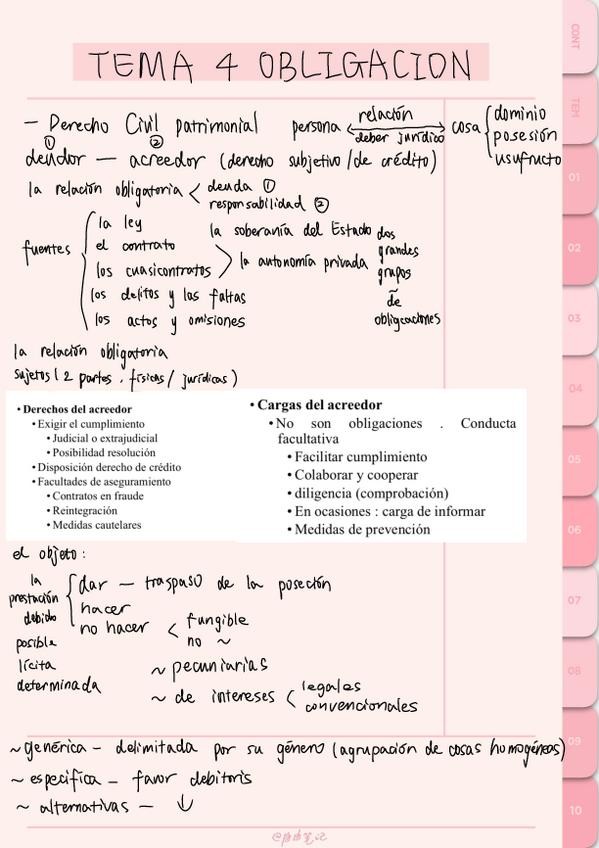 TEMA 4 OBLIGACION
CONT
TEM
01
02
03
04
05
06
07
08
09
10
- Derecho Civil patrimonial persona relación deber jurídico cosa { dominio
posesión
usufructo
① ②
deudor — acreedor (derecho subjetivo/de crédito)
la relación obligatoria < deuda ①
responsabilidad ②
fuentes { la ley
el contrato
los cuasicontratos
los delitos y las faltas
los actos y omisiones
la soberanía del Estado
la autonomía privada
dos
grandes
grupos
de
obligaciones
la relación obligatoria
sujetos (2 partes, físicas/jurídicas)
• Derechos del acreedor
• Exigir el cumplimiento
• Judicial o extrajudicial
• Posibilidad resolución
• Disposición derecho de crédito
• Facultades de aseguramiento
• Contratos en fraude
• Reintegración
• Medidas cautelares
• Cargas del acreedor
• No son obligaciones . Conducta
facultativa
• Facilitar cumplimiento
• Colaborar y cooperar
• diligencia (comprobación)
• En ocasiones : carga de informar
• Medidas de prevención
el objeto :
la
prestación
debido
posible
lícita
determinada
{ dar — traspaso de la poseción
hacer
no hacer < fungible
no ~
~ pecuniarias
~ de intereses < legales
convencionales
~ genérica - delimitada por su género (agrupación de cosas homogéneas)
~ especifica - favor debitoris
~ alternativas - ↓